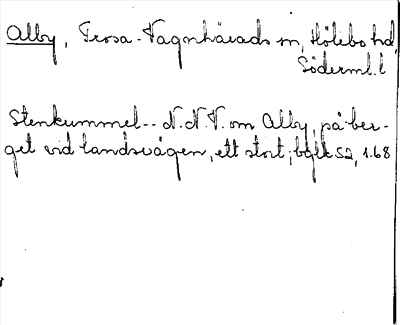 Alby, Trosa-Vagnhärads sn, Hölebo hd,
Söderml. l
Stenkummel-- N.N.V. om Alby, på ber-
get vid landsvägen, ett stort; bgbl S2, 1.68